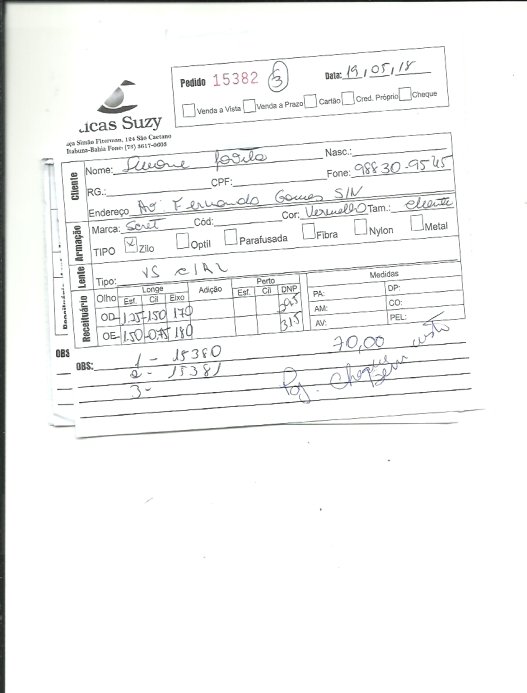 Pedido 15382 3 Data: 19,05,18
Venda a Vista Venda a Prazo Cartão Cred. Próprio Cheque
ticas Suzy
aça Simão Fiterman, 124 São Caetano
Itabuna-Bahia Fone: (73) 3617-0005
Cliente
Nome: Simone Nasc.:
RG.: CPF: Fone: 98830-9545
Endereço Av Fernando Gomes S/N
Armação
Marca: Secret Cód: Cor: Vermelho Tam.: cliente
TIPO Zilo Optil Parafusada Fibra Nylon Metal
Lente
Tipo: VS c/AR
Receituário
Longe Adição Perto Medidas
Olho Esf. Cil Eixo Esf. Cil DNP PA: DP:
OD -1.25 -1.50 170 AM: CO:
OE -1.50 -0.75 180 31.5 AV: PEL:
OBS
OBS: 1 - 15380 70,00
2 - 15381
3 -
Pg. Cheque